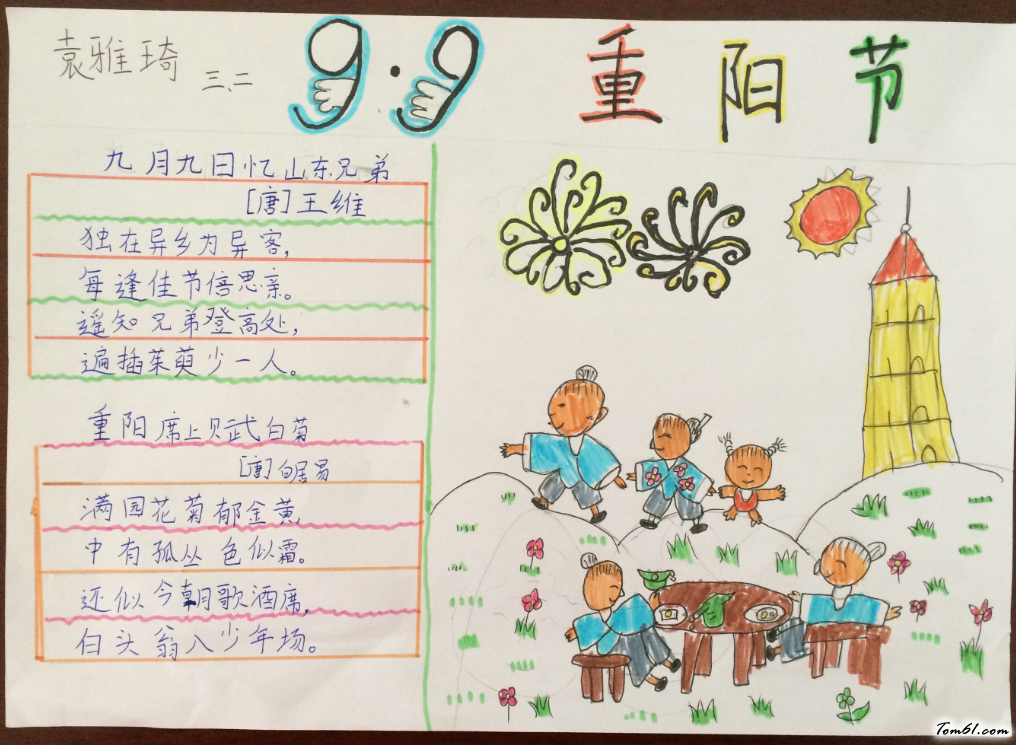 袁雅琦 三、二
9·9 重阳节
九月九日忆山东兄弟
[唐]王维
独在异乡为异客,
每逢佳节倍思亲。
遥知兄弟登高处,
遍插茱萸少一人。
重阳席上贝武白菊
[唐]白居易
满园花菊郁金黄,
中有孤丛色似霜。
还似今朝歌酒席,
白头翁入少年场。
Tom61.com